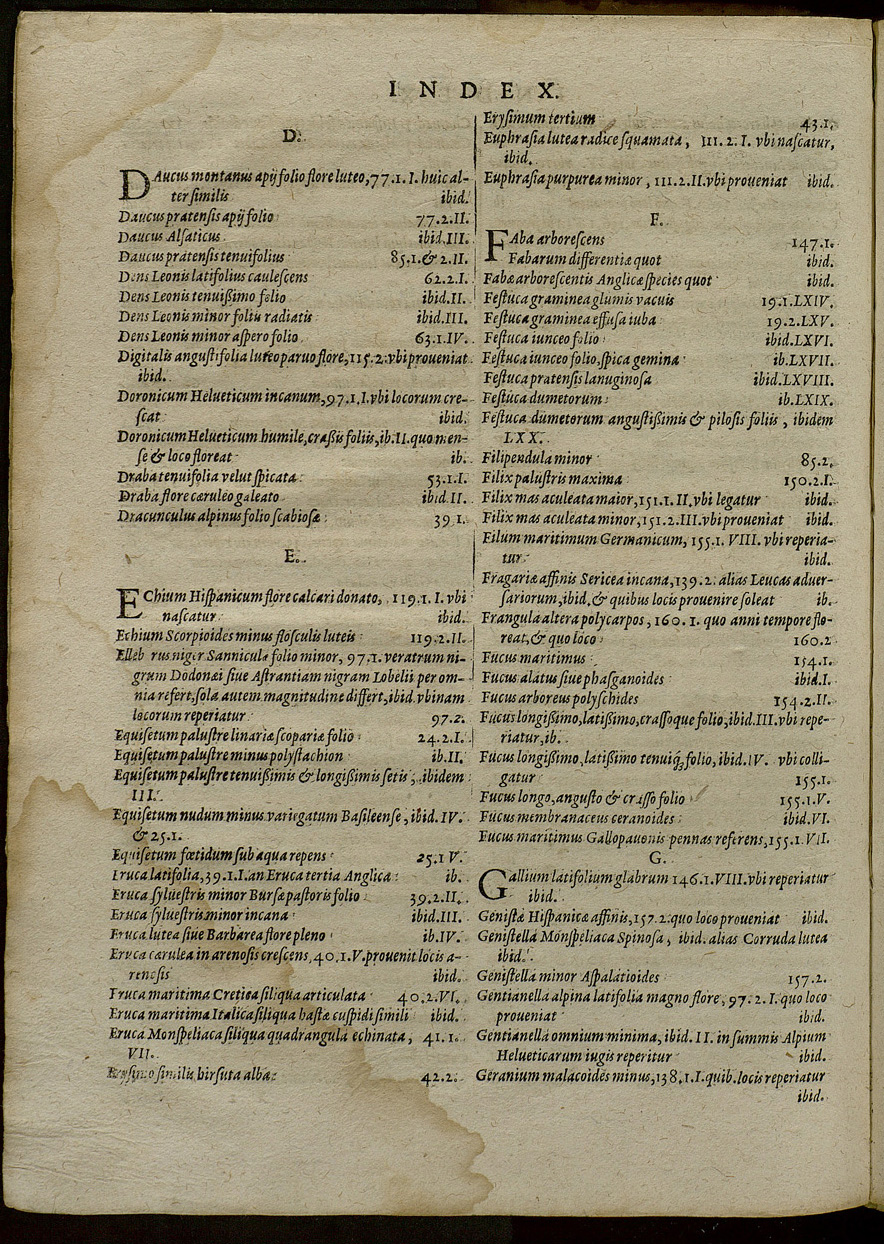 INDEX.
D.
DAucus montanus apij folio flore luteo, 77.1.I. huic al-
ter similis ibid.
Daucus pratensis apij folio 77.2.II.
Daucus Alsaticus ibid.III.
Daucus pratensis tenuifolius 85.1.& 2.II.
Dens Leonis latifolius caulescens 62.2.I.
Dens Leonis tenuißimo folio ibid.II.
Dens Leonis minor foliis radiatis ibid.III.
Dens Leonis minor aspero folio 63.1.IV.
Digitalis angustifolia luteo paruo flore, 115.2.vbi proueniat
ibid.
Doronicum Helueticum incanum, 97.1.I.vbi locorum cre-
scat ibid.
Doronicum Helueticum humile, craßis foliis, ib.II.quo men-
se & loco floreat ib.
Draba tenuifolia velut spicata 53.1.I.
Draba flore cæruleo galeato ibid II.
Dracunculus alpinus folio scabiosæ 39 1.
E.
EChium Hispanicum flore calcari donato, 119.1.I. vbi
nascatur ibid.
Echium Scorpioides minus flosculis luteis 119.2.II.
Elleb rus niger Sanniculæ folio minor, 97.1. veratrum ni-
grum Dodonæi siue Astrantiam nigram Lobelii per om-
nia refert, sola autem magnitudine differt, ibid.vbinam
locorum reperiatur 97.2.
Equisetum palustre linariæ scopariæ folio 24.2.I.
Equisetum palustre minus polystachion ib.II.
Equisetum palustre tenuißimis & longißimis setis, ibidem
III.
Equisetum nudum minus variegatum Basileense, ibid. IV.
& 25.1.
Equisetum fœtidum sub aqua repens 25.1 V.
Eruca latifolia, 39.1.I.an Eruca tertia Anglica ib.
Eruca syluestris minor Bursæ pastoris folio 39.2.II.
Eruca syluestris minor incana ibid.III.
Eruca lutea siue Barbarea flore pleno ib.IV.
Eruca cærulea in arenosis crescens, 40.1.V.prouenit locis a-
renosis ibid.
Eruca maritima Cretica siliqua articulata 40.2.VI.
Eruca maritima Italica siliqua hastæ cuspidi simili ibid.
Eruca Monspeliaca siliqua quadrangula echinata, 41.1.
VII.
Erysimo similis hirsuta alba 42.2.
Erysimum tertium 43.1.
Euphrasia lutea radice squamata, 111.2.I. vbi nascatur,
ibid.
Euphrasia purpurea minor, 111.2.II.vbi proueniat ibid.
F.
FAba arborescens 147.1.
Fabarum differentiæ quot ibid.
Fabæ arborescentis Anglicæ species quot ibid.
Festuca graminea glumis vacuis 19.1.LXIV.
Festuca graminea effusa iuba 19.2.LXV.
Festuca iunceo folio ibid.LXVI.
Festuca iunceo folio, spica gemina ib.LXVII.
Festuca pratensis lanuginosa ibid.LXVIII.
Festuca dumetorum ib.LXIX.
Festuca dumetorum angustißimis & pilosis foliis, ibidem
LXX.
Filipendula minor 85.2.
Filix palustris maxima 150.2.I.
Filix mas aculeata maior, 151.1.II, vbi legatur ibid.
Filix mas aculeata minor, 151.2.III.vbi proueniat ibid.
Filum maritimum Germanicum, 155.1. VIII. vbi reperia-
tur ibid.
Fragariæ affinis Sericea incana, 139.2. alias Leucas aduer-
sariorum, ibid, & quibus locis prouenire soleat ib.
Frangula altera polycarpos, 160.1. quo anni tempore flo-
reat, & quo loco 160.2
Fucus maritimus 154.1.
Fucus alatus siue phasganoides ibid.I.
Fucus arboreus polyschides 154.2.II.
Fucus longißimo, latißimo, crassoque folio, ibid.III.vbi repe-
riatur, ib.
Fucus longißimo, latißimo tenuiq; folio, ibid.IV. vbi colli-
gatur 155.1.
Fucus longo, angusto & crasso folio 155.1.V.
Fucus membranaceus ceranoides ibid.VI.
Fucus maritimus Gallopauonis pennas referens, 155.1.VII.
G.
Gallium latifolium glabrum 146.1.VIII.vbi reperiatur
ibid.
Genistæ Hispanicæ affinis, 157.2.quo loco proueniat ibid.
Genistella Monspeliaca Spinosa, ibid. alias Corruda lutea
ibid.
Genistella minor Aspalatioides 157.2.
Gentianella alpina latifolia magno flore, 97.2.I.quo loco
proueniat ibid.
Gentianella omnium minima, ibid.II. in summis Alpium
Helueticarum iugis reperitur ibid.
Geranium malacoides minus, 138.1.I.quib.locis reperiatur
ibid.